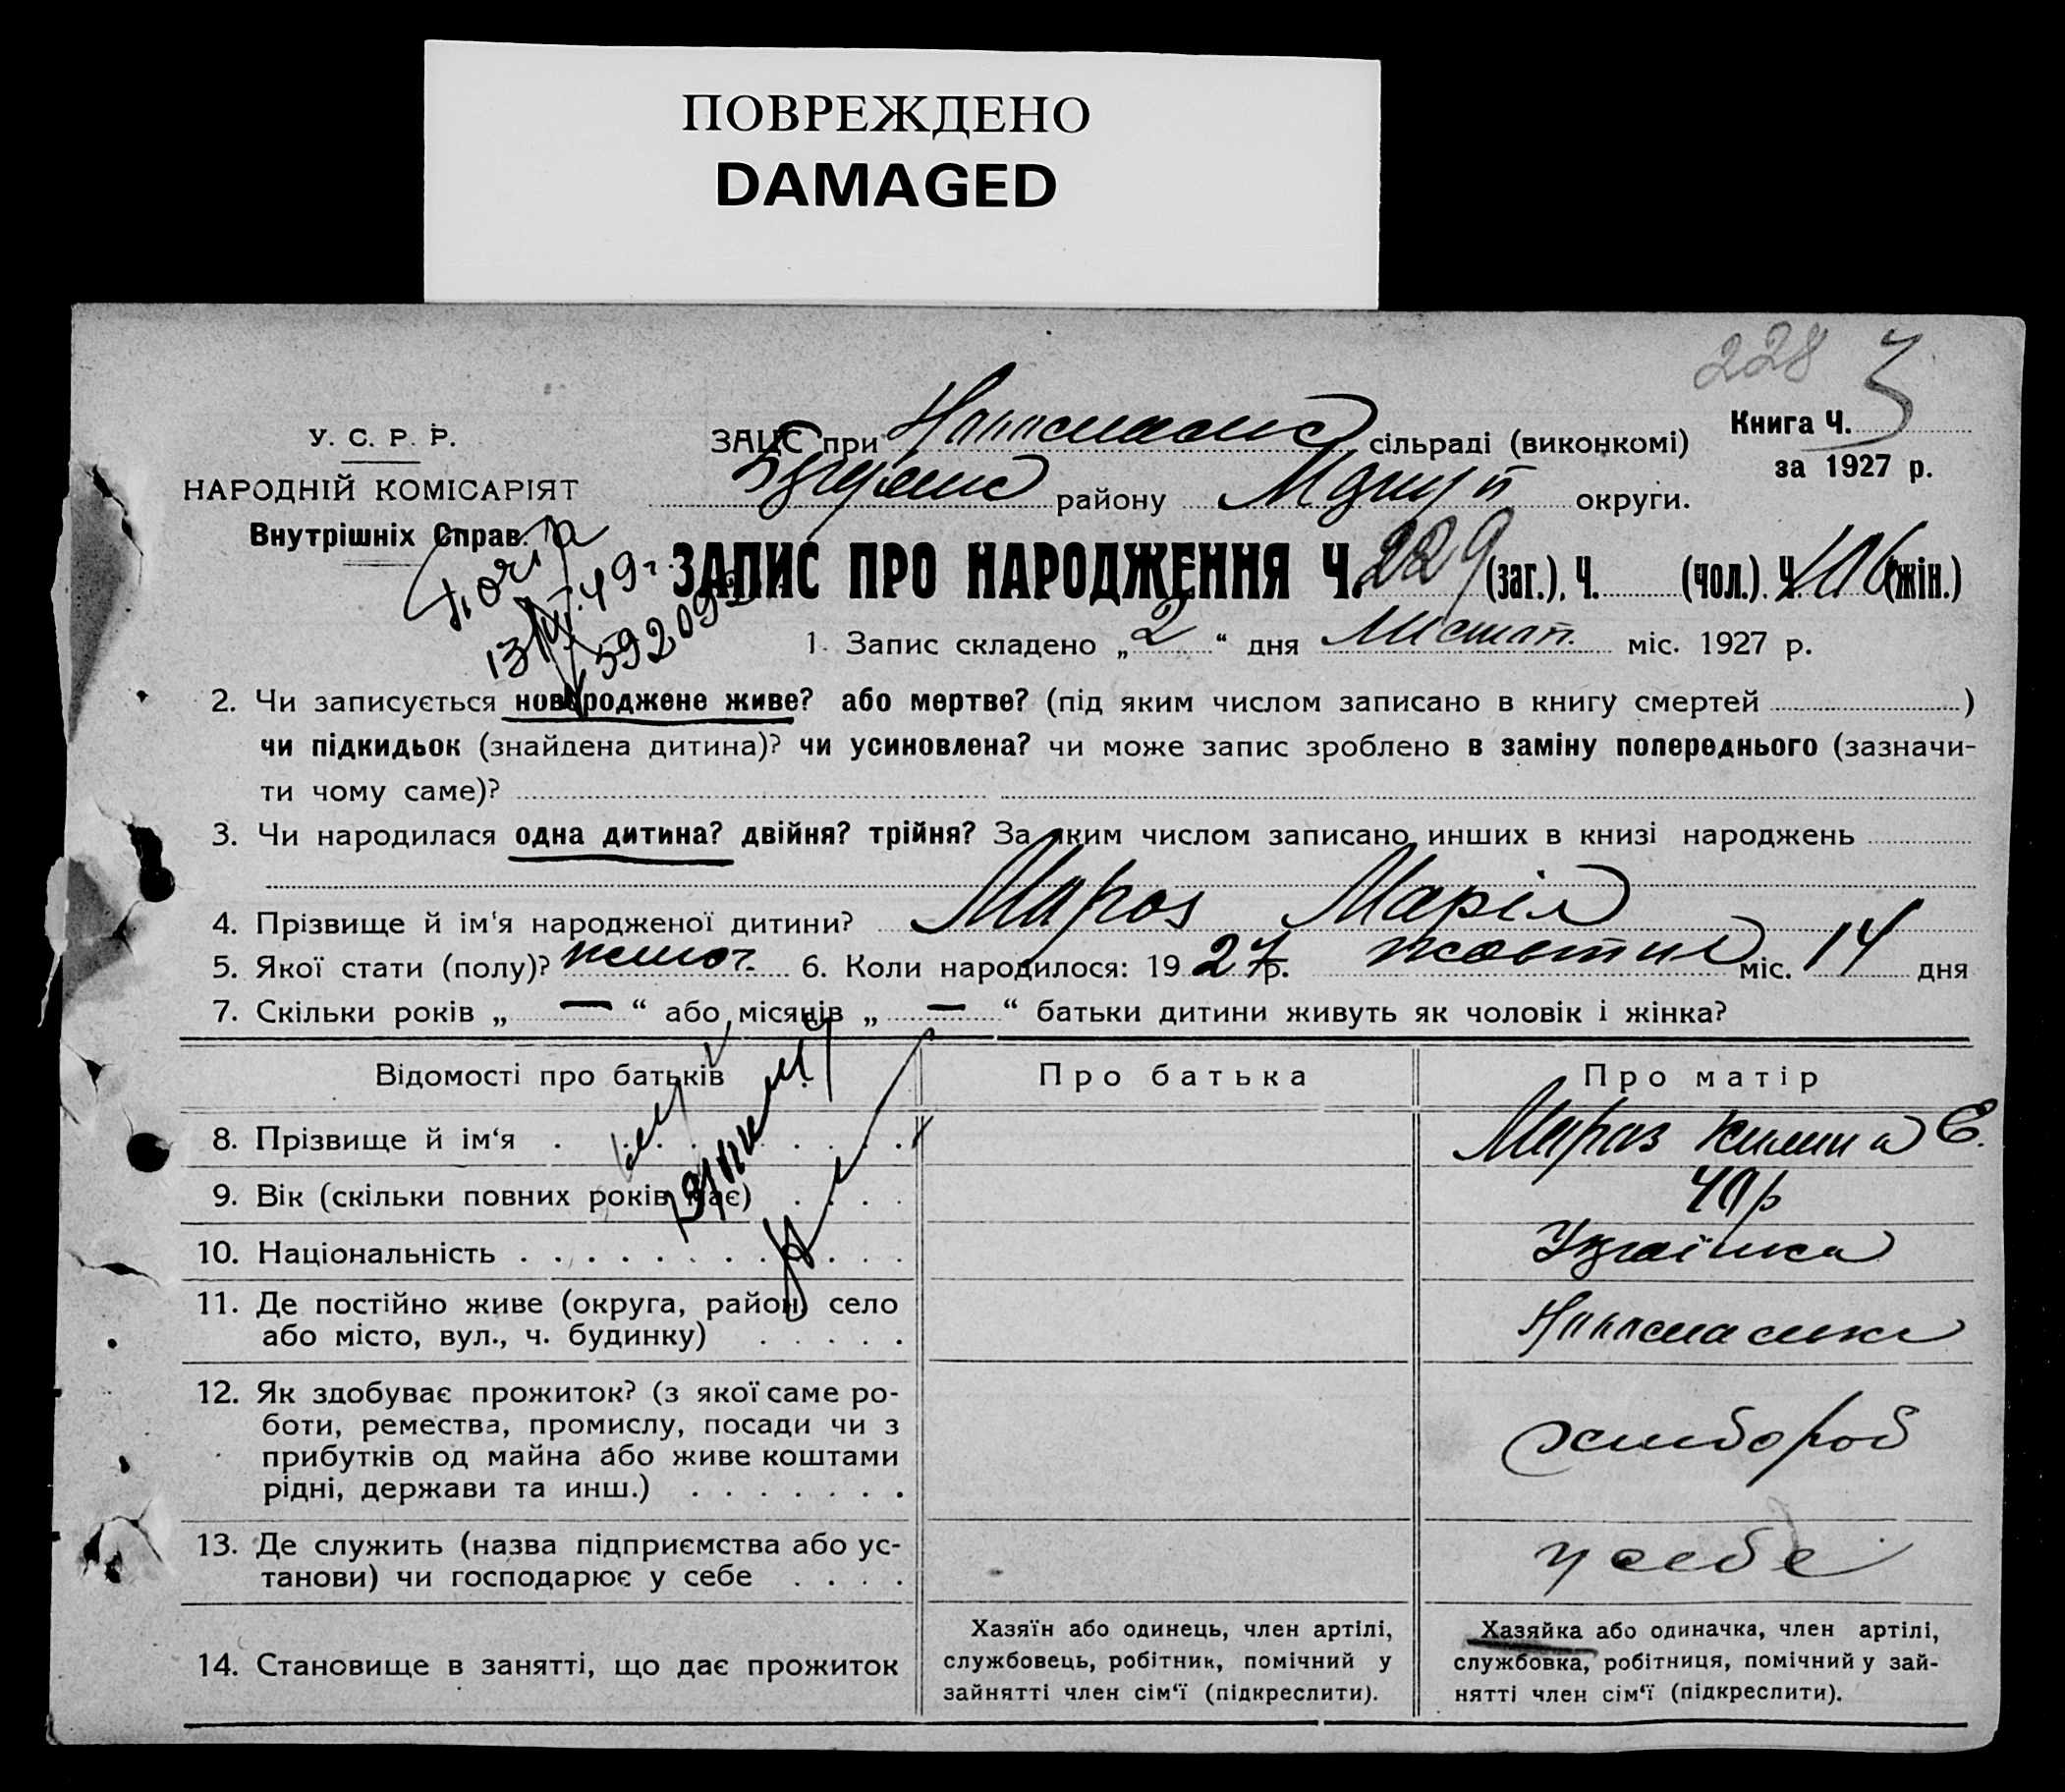 ПОВРЕЖДЕНО
DAMAGED
228 3
У. С. Р. Р.
НАРОДНІЙ КОМІСАРІЯТ
Внутрішніх Справ.
ЗАЦС при сільраді (виконкомі)
району округи.
Книга Ч.
за 1927 р.
ЗАПИС ПРО НАРОДЖЕННЯ Ч. 229 (заг.), Ч. (чол.). Ч. 106 (жін.)
592092
1. Запис складено „ 2 “ дня Листоп. міс. 1927 р.
2. Чи записується новороджене живе? або мертве? (під яким числом записано в книгу смертей )
чи підкидьок (знайдена дитина)? чи усиновлена? чи може запис зроблено в заміну попереднього (зазначи-
ти чому саме)?
3. Чи народилася одна дитина? двійня? трійня? За яким числом записано инших в книзі народжень
4. Прізвище й ім'я народженої дитини? Мороз Марія
5. Якої стати (полу)? жіноч. 6. Коли народилося: 19 27 р. жовтня міс. 14 дня
7. Скільки років „ — “ або місяців „ — “ батьки дитини живуть як чоловік і жінка?
Відомості про батьків Про батька Про матір
8. Прізвище й ім‘я . . . . . . . . . Мороз Є.
9. Вік (скільки повних років має) . . . . 40 р
10. Національність . . . . . . . . . . . . Українка
11. Де постійно живе (округа, район, село
або місто, вул., ч. будинку) . . . . .
12. Як здобуває прожиток? (з якої саме ро-
боти, ремества, промислу, посади чи з
прибутків од майна або живе коштами
рідні, держави та инш.) . . . . . . .
хлибороб
13. Де служить (назва підприємства або ус-
танови) чи господарює у себе . . . .
у себе
14. Становище в занятті, що дає прожиток
Хазяїн або одинець, член артілі,
службовець, робітник, помічний у
зайнятті член сім‘ї (підкреслити).
Хазяйка або одиначка, член артілі,
службовка, робітниця, помічний у зай-
нятті член сім‘ї (підкреслити).